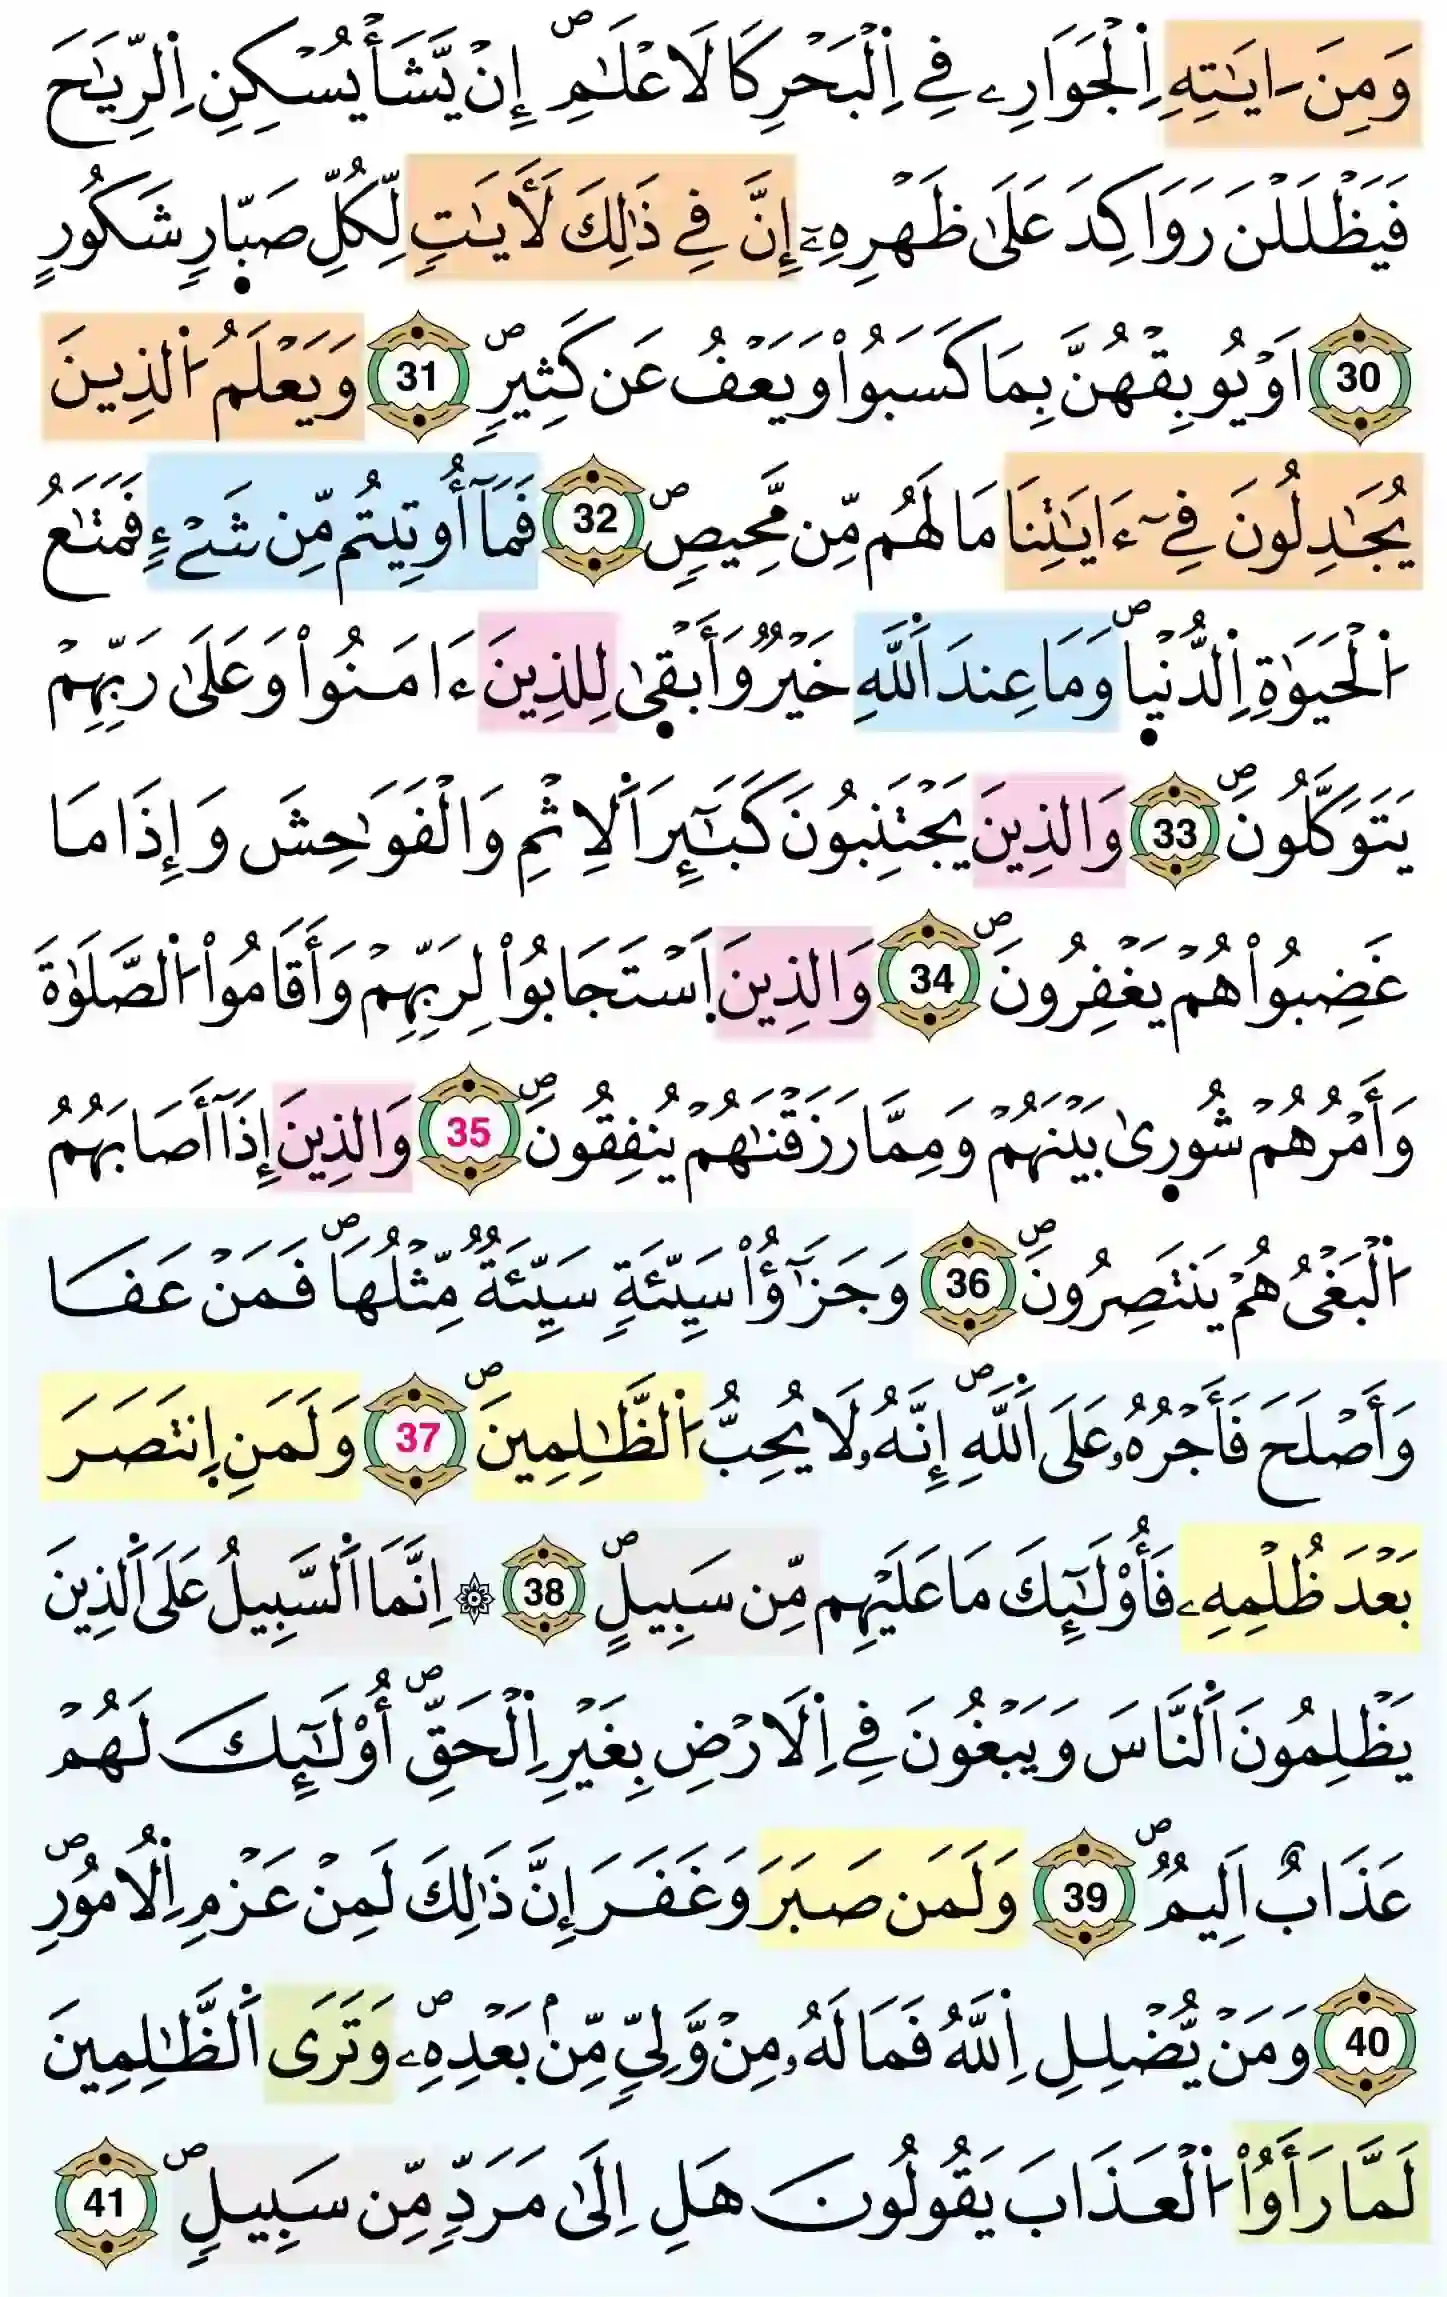 وَمِنَ ءَايَٰتِهِ اِ۬لْجَوَارِۦ فِے اِ۬لْبَحْرِ كَالَاعْلَٰمِۖ إِنْ يَّشَأْ يُسْكِنِ اِ۬لرِّيَٰحَ
فَيَظْلَلْنَ رَوَاكِدَ عَلَىٰ ظَهْرِهِۦٓ إِنَّ فِے ذَٰلِكَ لَأٓيَٰتٖ لِّكُلِّ صَبّ۪ارٖ شَكُورٍ
30 اَوْ يُوبِقْهُنَّ بِمَا كَسَبُواْ وَيَعْفُ عَن كَثِيرٖۖ 31 وَيَعْلَمُ اَ۬لذِينَ
يُجَٰدِلُونَ فِےٓ ءَايَٰتِنَا مَا لَهُم مِّن مَّحِيصٖۖ 32 فَمَآ أُوتِيتُم مِّن شَےْءٖ فَمَتَٰعُ
اُ۬لْحَيَوٰةِ اِ۬لدُّنْي۪اۖ وَمَا عِندَ اَ۬للَّهِ خَيْرٞ وَأَبْق۪ىٰ لِلذِينَ ءَامَنُواْ وَعَلَىٰ رَبِّهِمْ
يَتَوَكَّلُونَۖ 33 وَالذِينَ يَجْتَنِبُونَ كَبَٰٓئِرَ اَ۬لِاثْمِ وَالْفَوَٰحِشَ وَإِذَا مَا
غَضِبُواْ هُمْ يَغْفِرُونَۖ 34 وَالذِينَ اَ۪سْتَجَابُواْ لِرَبِّهِمْ وَأَقَامُواْ اُ۬لصَّلَوٰةَ
وَأَمْرُهُمْ شُور۪ىٰ بَيْنَهُمْ وَمِمَّا رَزَقْنَٰهُمْ يُنفِقُونَۖ 35 وَالذِينَ إِذَآ أَصَابَهُمُ
اُ۬لْبَغْيُ هُمْ يَنتَصِرُونَۖ 36 وَجَزَٰٓؤُاْ سَيِّئَةٖ سَيِّئَةٞ مِّثْلُهَاۖ فَمَنْ عَفَا
وَأَصْلَحَ فَأَجْرُهُۥ عَلَى اَ۬للَّهِۖ إِنَّهُۥ لَا يُحِبُّ اُ۬لظَّٰلِمِينَۖ 37 وَلَمَنِ اِ۪نتَصَرَ
بَعْدَ ظُلْمِهِۦ فَأُوْلَٰٓئِكَ مَا عَلَيْهِم مِّن سَبِيلٍۖ 38 ۞ اِنَّمَا اَ۬لسَّبِيلُ عَلَى اَ۬لذِينَ
يَظْلِمُونَ اَ۬لنَّاسَ وَيَبْغُونَ فِے اِ۬لَارْضِ بِغَيْرِ اِ۬لْحَقِّۖ أُوْلَٰٓئِكَ لَهُمْ
عَذَابٌ اَلِيمٞۖ 39 وَلَمَن صَبَرَ وَغَفَرَ إِنَّ ذَٰلِكَ لَمِنْ عَزْمِ اِ۬لُامُورِۖ
40 وَمَنْ يُّضْلِلِ اِ۬للَّهُ فَمَا لَهُۥ مِنْ وَّلِيّٖ مِّنۢ بَعْدِهِۦۖ وَتَرَى اَ۬لظَّٰلِمِينَ
لَمَّا رَأَوُاْ اُ۬لْعَذَابَ يَقُولُونَ هَلِ اِلَىٰ مَرَدّٖ مِّن سَبِيلٖۖ 41